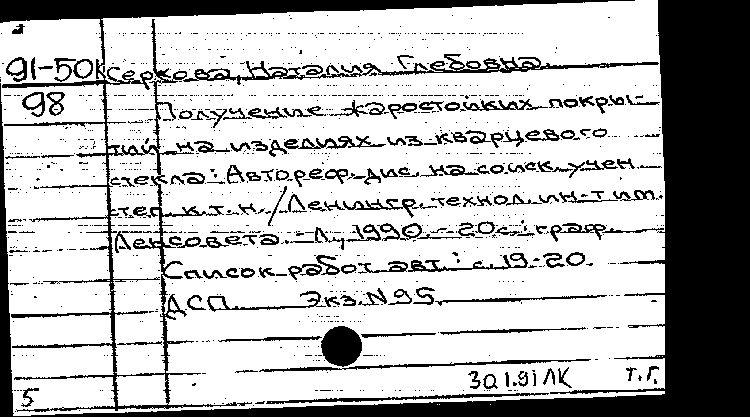 91-50к Серкова, Наталия Глебовна.
98 Получение жаростойких покры-
тий на изделиях из кварцевого
стекла: Автореф. дис. на соиск. учен.
степ. к.т.н. / Ленингр. технол. ин-т им.
Ленсовета. - Л., 1990. - 20с.: граф.
Список работ авт.: с. 19-20.
ДСП. Экз. N 95.
30.1.91 ЛК Т.Г.
5